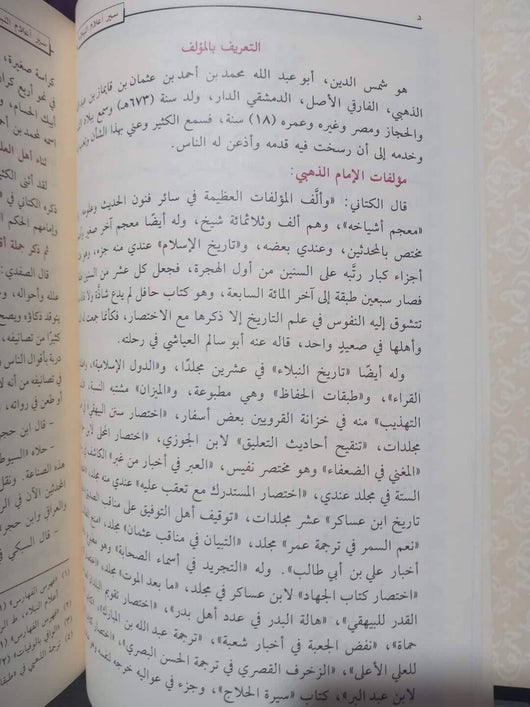 د
سير أعلام النبلاء
التعريف بالمؤلف
هو شمس الدين، أبو عبد الله محمد بن أحمد بن عثمان بن قايماز بن عبد
الذهبي، الفارقي الأصل، الدمشقي الدار، ولد سنة (٦٧٣هـ) وسمع ببلاد
والحجاز ومصر وغيره وعمره (١٨) سنة، فسمع الكثير وعني بهذا الشأن
وخدمه إلى أن رسخت فيه قدمه وأذعن له الناس.
مؤلفات الإمام الذهبي:
قال الكتاني: «وألَّف المؤلفات العظيمة في سائر فنون الحديث
«معجم أشياخه»، وهم ألف وثلاثمائة شيخ، وله أيضًا معجم آخر صغير
مختص بالمحدثين، وعندي بعضه، و«تاريخ الإسلام» عندي منه جزء،
أجزاء كبار رتَّبه على السنين من أول الهجرة، فجعل كل عشر من السنين
فصار سبعين طبقة إلى آخر المائة السابعة، وهو كتاب حافل لم يدع شاذَّة ولا
تتشوق إليه النفوس في علم التاريخ إلا ذكرها مع الاختصار، فكأنما جمعت له
وأهلها في صعيدٍ واحد، قاله عنه أبو سالم العياشي في رحلته.
وله أيضًا «تاريخ النبلاء» في عشرين مجلدًا، و«الدول الإسلامية»،
القراء»، و«طبقات الحفاظ» وهي مطبوعة، و«الميزان» مشتبه النسبة،
التهذيب» منه في خزانة القرويين بعض أسفار، «اختصار سنن البيهقي»
مجلدات، «تنقيح أحاديث التعليق» لابن الجوزي، «اختصار المحلى»
«المغني في الضعفاء» وهو مختصر نفيس، «العبر في أخبار من غبر» الكاشف
الستة في مجلد عندي، «اختصار المستدرك مع تعقب عليه» عندي منه مجلد،
تاريخ ابن عساكر» عشر مجلدات، «توقيف أهل التوفيق على مناقب
«نعم السمر في ترجمة عمر» مجلد، «التبيان في مناقب عثمان» مجلد،
أخبار علي بن أبي طالب». وله «التجريد في أسماء الصحابة» وهو
«اختصار كتاب الجهاد» لابن عساكر في مجلد، «ما بعد الموت» مجلد،
القدر للبيهقي»، «هالة البدر في عدد أهل بدر»، «اختصار تقويم البلدان
حماة»، «نفض الجعبة في أخبار شعبة»، «ترجمة عبد الله بن المبارك»،
للعلي الأعلى»، «الزخرف القصري في ترجمة الحسن البصري»،
لابن عبد البر»، كتاب «سيرة الحلاج»، وجزء في عواليه خرجه
كراسة صغيرة،
في نحو أربع
أيبك الحسام،
إسم لمحمد بن
ثناء أهل العلم
لقد أثنى الكثير
ذكره الكتاني في
وإمامهم الحكم
ثم ذكر جملة
قال الصفدي:
علله وأحواله،
يتوقد ذكاؤه ويصح
كثيرًا من تصانيفه،
دربة بأقوال الناس
في تصانيفه من أنه لا
أو طعن في رواته،
- قال ابن حجر
- حلاه «السيوطي
هذه الصناعة. ونقل
المحدثين الآن في
والعراقي وابن حجر»
- قال السبكي في
(١) «فهرس الفهارس»
أعلام النبلاء، ط
(٢) «فهرس الفهارس»
(٣) «الوافي بالوفيات» (٢
(٤) ترجمة الذهبي في «طبقا